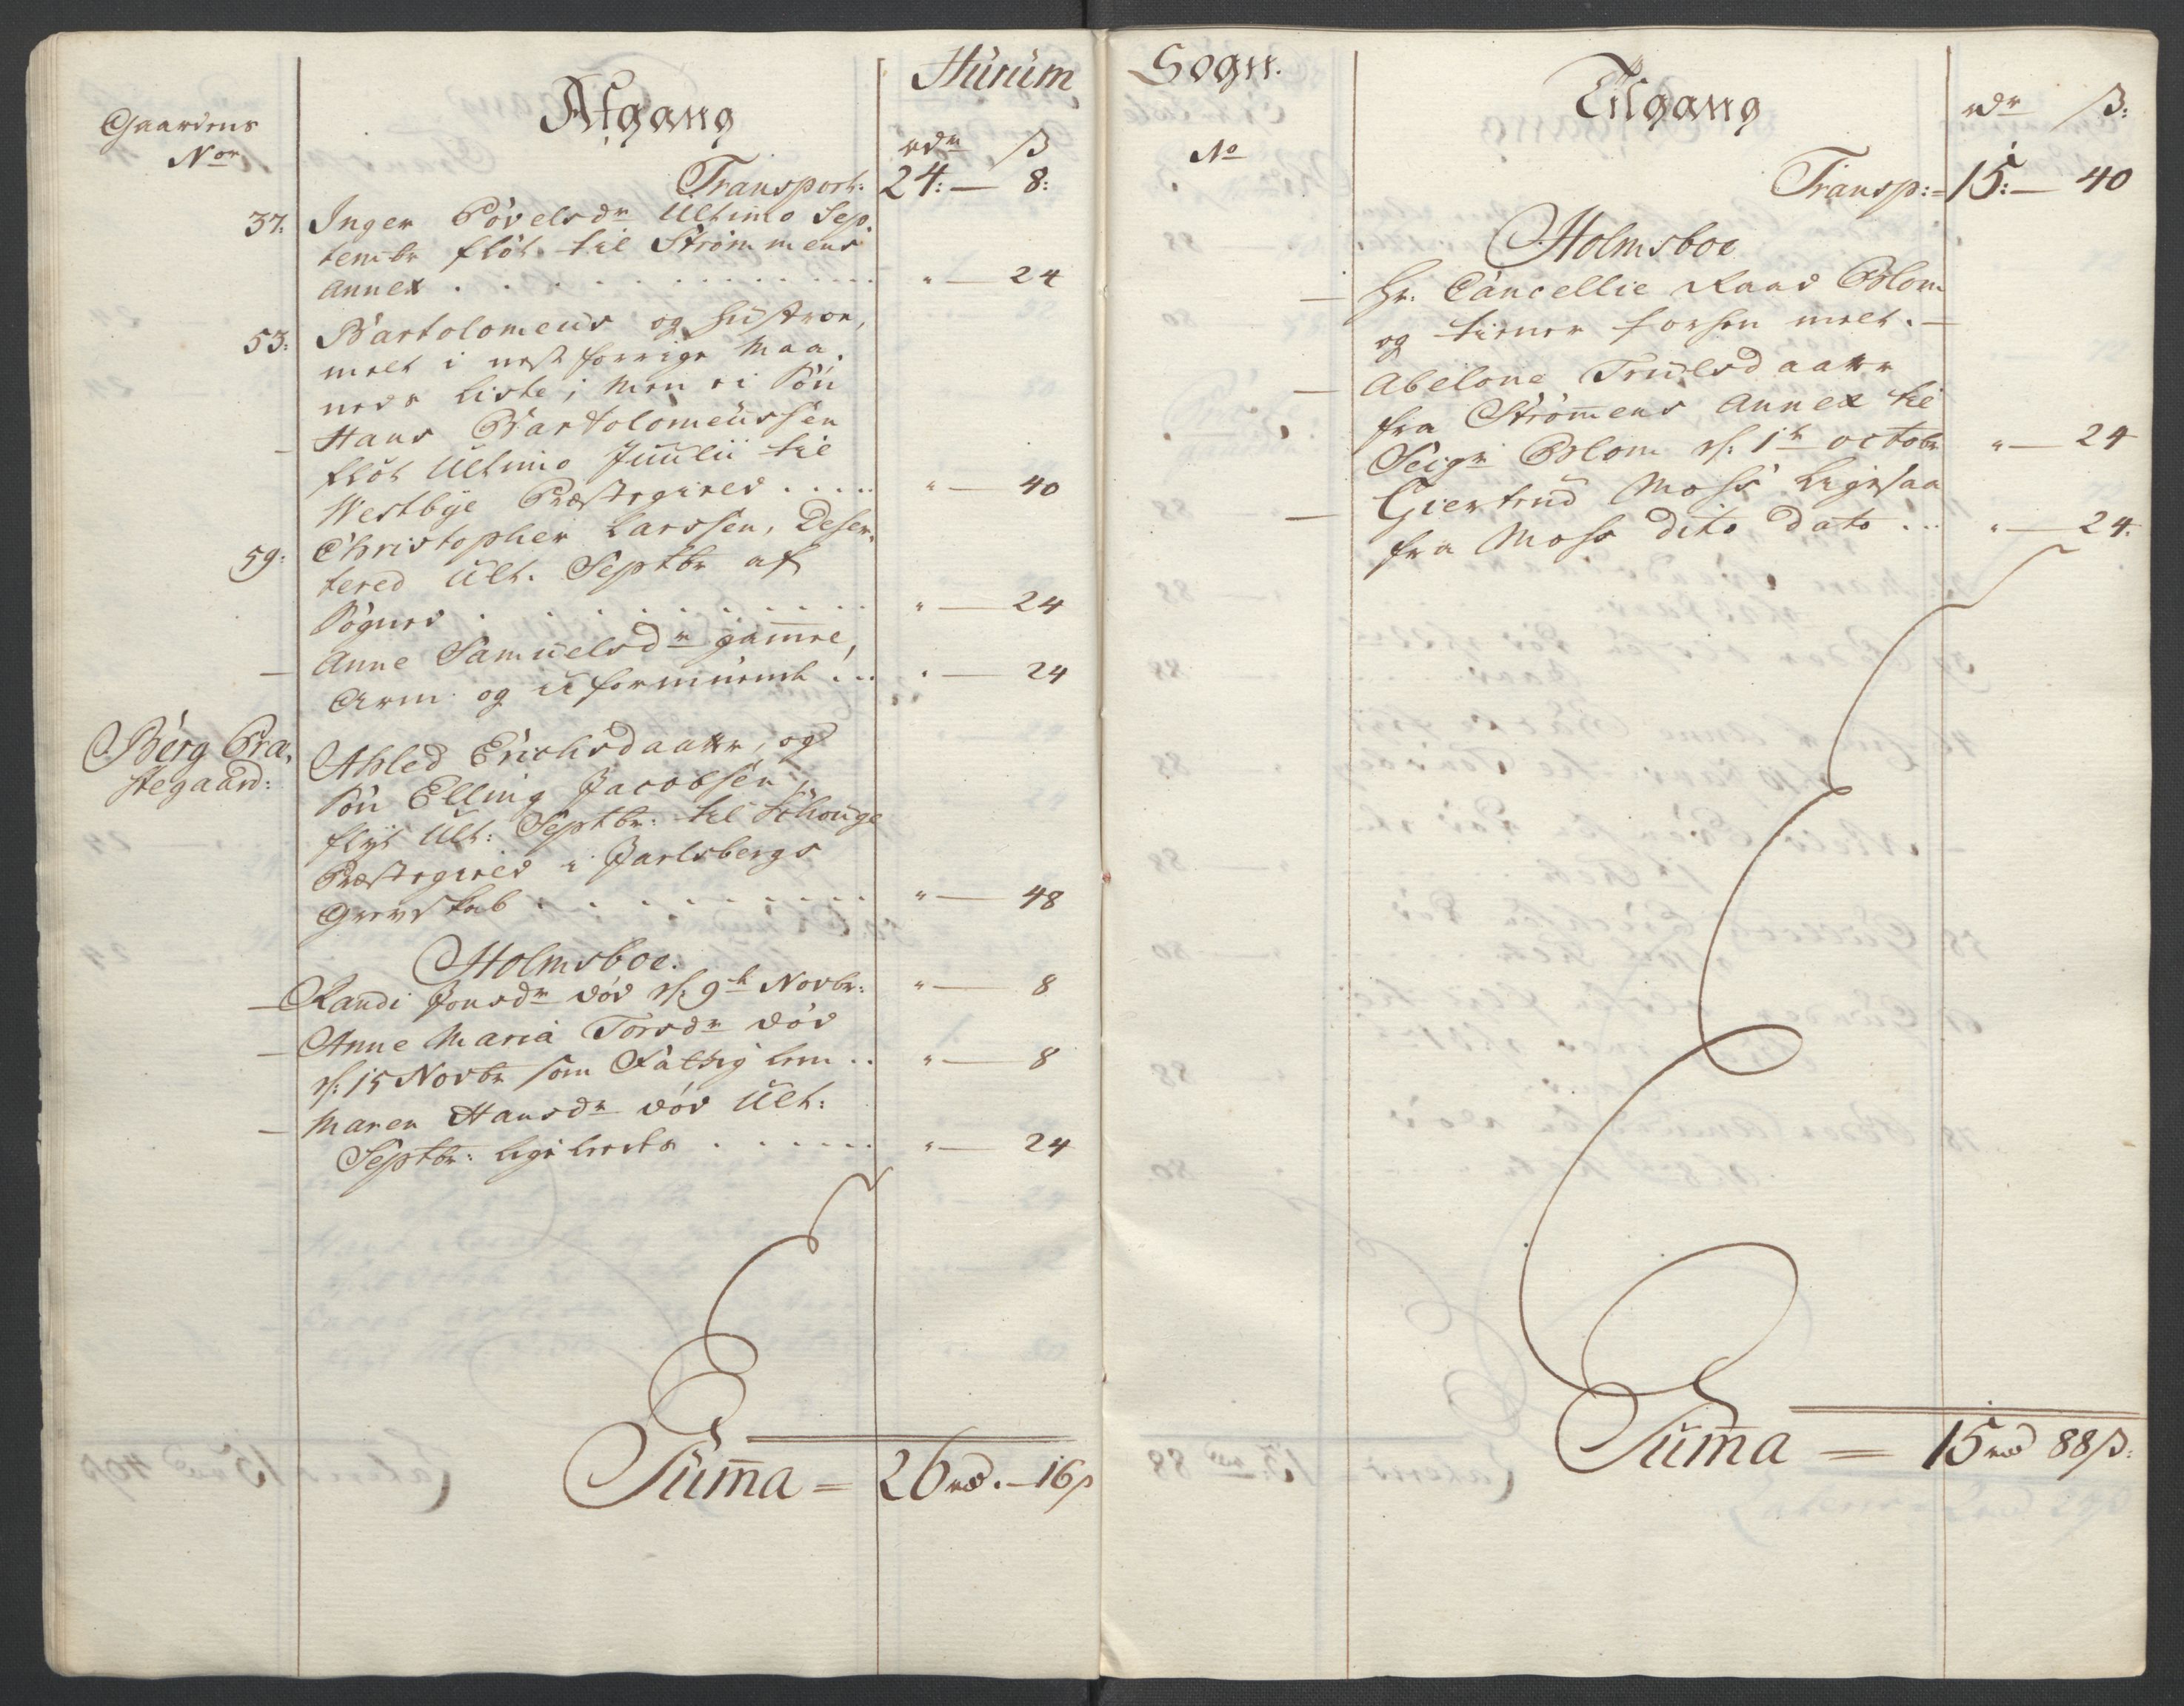 Hurum
Afgang
Gaardens
Nor
rdr ß
Transport: 24: — 8:
37: Inger Povelsdr Ultimo Sep.
tembr fløt til Strømmens
Annex . . . . . . . . . " — 24
53: Bartolomeus og Hustroe,
melt i nest forrige Maa.
neds Liste, men ei Søn
— Hans Bartolomeussen
fløt Ultimo Juulii til
Westbye Præstegield . . . . " — 40
59: Christopher Larssen, Deser,
tered Ult. Septbr af
Sognet . . . . . . . . . " — 24
— Anne Samuelsdr gammel,
Arm og uformuende . . . " — 24
Berg Præ,
stegaard:
Ahled Erichsdaatter, og
Søn Elling Jacobsen,
fløt Ult: Septbr: til Schouge
Præstegield i Jarlsbergs
Grevskab . . . . . . . . " — 48
Holmsboe.
— Randi Jonsdr død d: 9de Novbr: " — 8
— Anne Maria Torsdr død
d: 15 Novbr som Fattig lem . . " — 8
— Maren Hansdr død Ult:
Septbr: lige ledes . . . . . . " — 24
Summa = 26 rd. — 16 ß
Sogn.
Tilgang
No
rdr ß:
Transp: = 15: — 40
Holmsboe
— Hr. Cancellie Raad Blom
og tiener forhen melt. —
— Abelone Truelsdaatter
fra Strømmens Annex til
Seigr Blom d: 1te octobr " — 24
— Giertrud Moss ligesaa
fra Moss dito dato . . . " — 24.
Summa = 15 rd 88 ß: